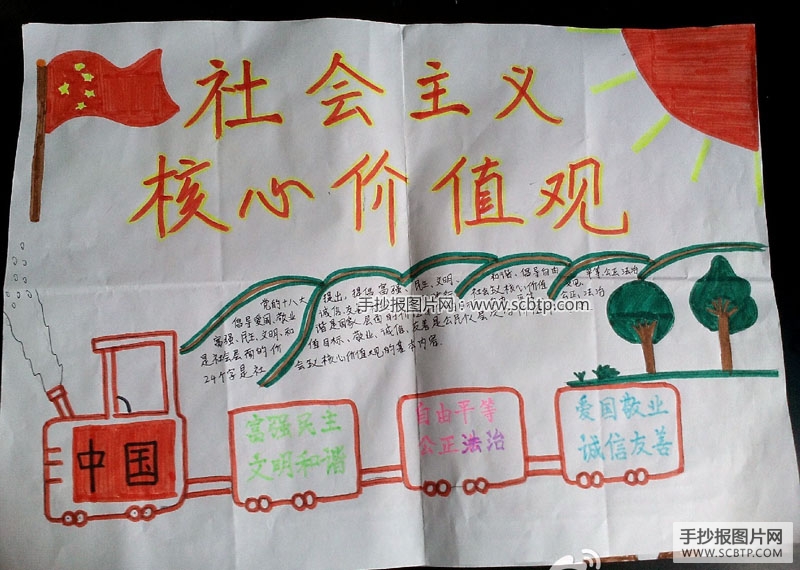 社会主义
核心价值观
党的十八大提出,提倡富强、民主、文明、和谐、倡导自由、平等、公正、法治
倡导爱国、敬业、诚信、友善
社会主义核心价值
公正、法治
富强、民主、文明、和谐是国家层面的价
是社会层面的价值目标、敬业、诚信、友善是公民个人层
24个字是社会主义核心价值观的基本内容.
手抄报图片网:www.scbtp.com
中国
富强民主
文明和谐
自由平等
公正法治
爱国敬业
诚信友善
手抄报图片网
WWW.SCBTP.COM